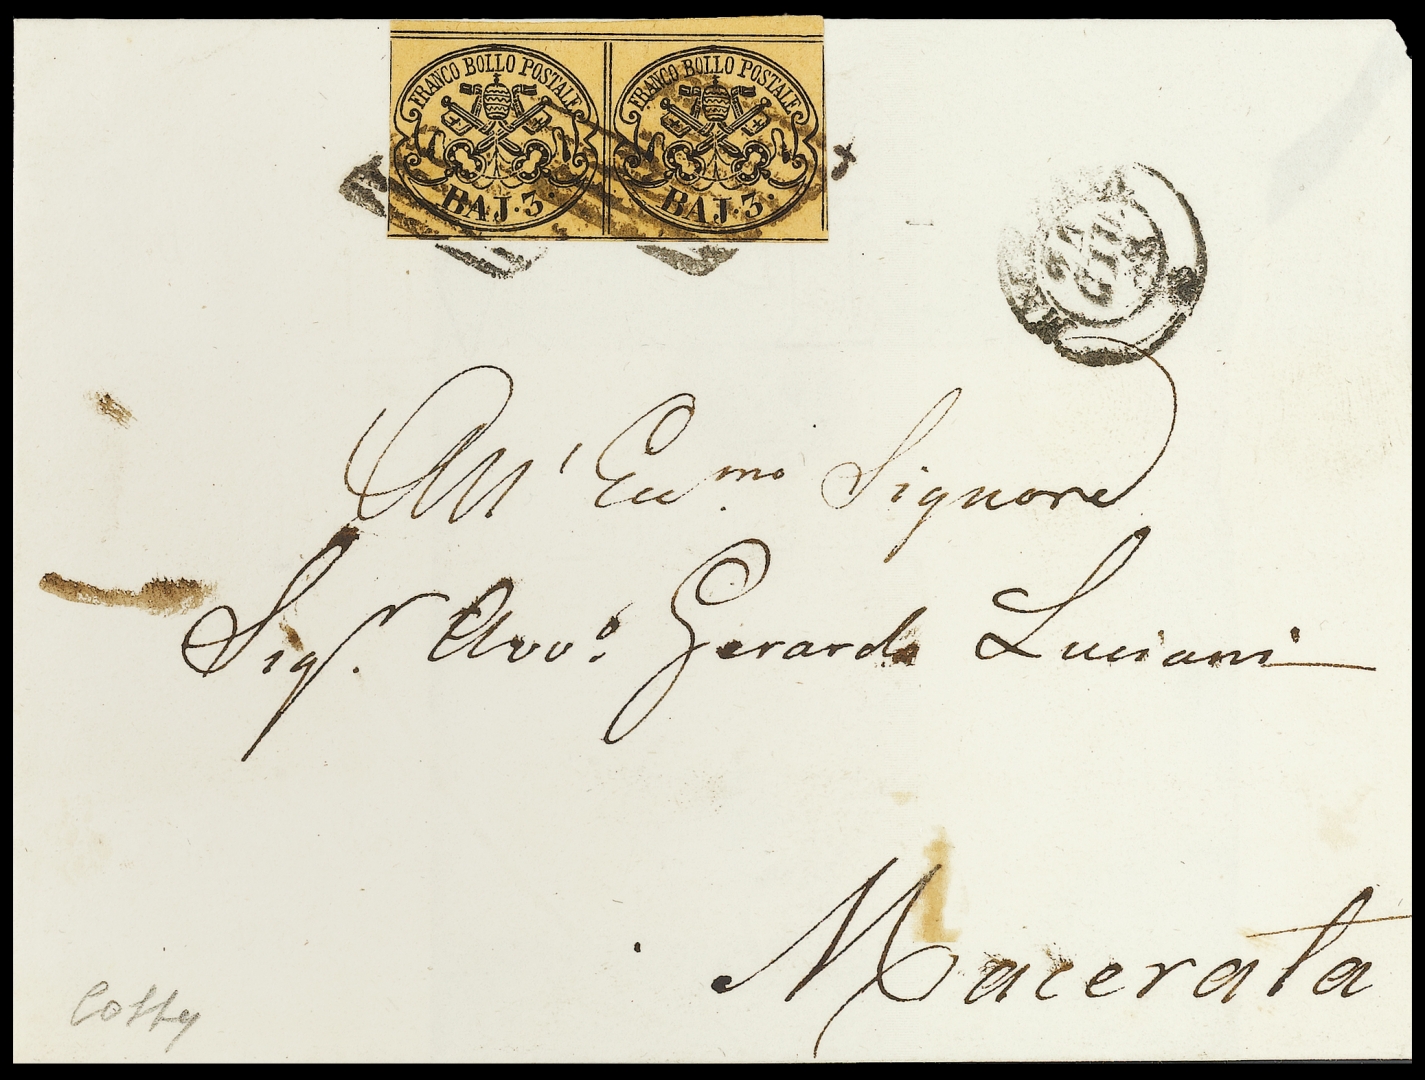 FRANCO BOLLO POSTALE
BAJ. 3.
FRANCO BOLLO POSTALE
BAJ. 3.
GIU
All' Ecc.mo Signore
Sigr. Avvo. Gerardo Luciani
Macerata